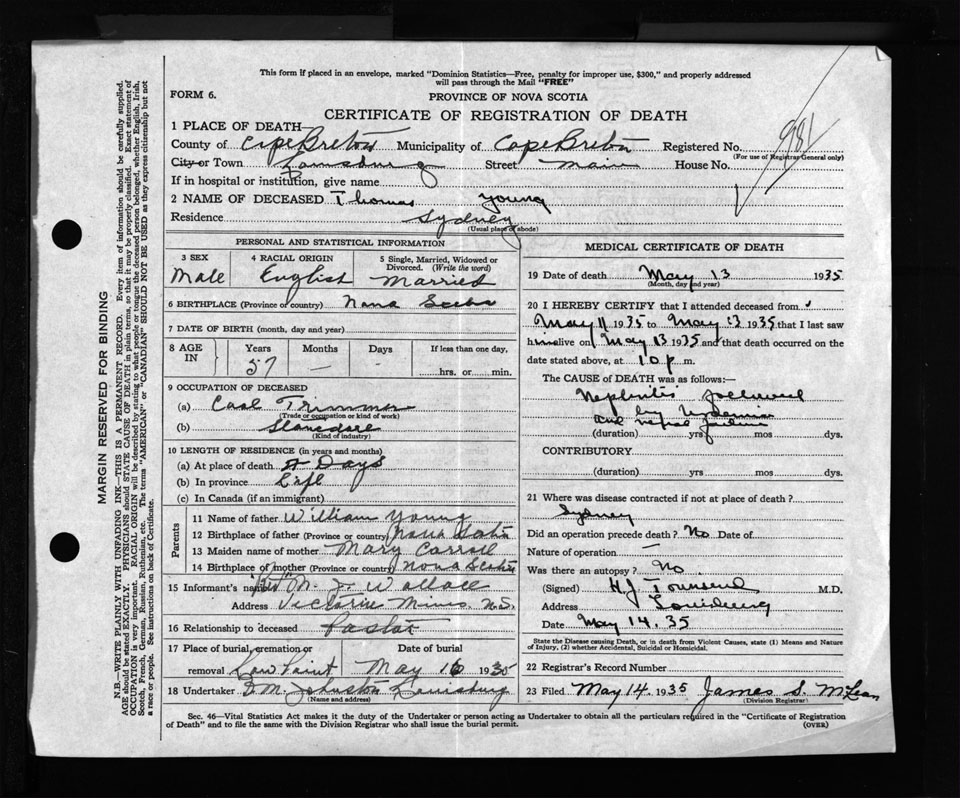 This form if placed in an envelope, marked "Dominion Statistics—Free, penalty for improper use, $300," and properly addressed
will pass through the Mail "FREE"
FORM 6.
PROVINCE OF NOVA SCOTIA
CERTIFICATE OF REGISTRATION OF DEATH
981
1 PLACE OF DEATH—
County of Cape Breton Municipality of Cape Breton Registered No.
(For use of Registrar General only)
City or Town Louisburg Street Main House No.
If in hospital or institution, give name
2 NAME OF DECEASED Thomas Young
Residence Sydney
(Usual place of abode)
PERSONAL AND STATISTICAL INFORMATION
3 SEX Male
4 RACIAL ORIGIN English
5 Single, Married, Widowed or Divorced. (Write the word) Married
6 BIRTHPLACE (Province or country) Nova Scotia
7 DATE OF BIRTH (month, day and year)
8 AGE IN Years 57 Months — Days If less than one day, hrs. or min.
9 OCCUPATION OF DECEASED
(a) Coal Trimmer
(Trade or occupation or kind of work)
(b)
(Kind of industry)
10 LENGTH OF RESIDENCE (in years and months)
(a) At place of death Days
(b) In province Life
(c) In Canada (if an immigrant)
Parents
11 Name of father William Young
12 Birthplace of father (Province or country) Nova Scotia
13 Maiden name of mother Mary Carroll
14 Birthplace of mother (Province or country) Nova Scotia
15 Informant's name M. J. Wallace
Address Victoria Mines. N.S.
16 Relationship to deceased Pastor
17 Place of burial, cremation or removal Low Point
Date of burial May 16 1935
18 Undertaker Johnston Louisburg
(Name and address)
MEDICAL CERTIFICATE OF DEATH
19 Date of death May 13 1935
(Month, day and year)
20 I HEREBY CERTIFY that I attended deceased from
May 11 1935 to May 13 1935 that I last saw
him alive on May 13 1935 and that death occurred on the
date stated above, at 10 p m.
The CAUSE of DEATH was as follows:—
Nephritis followed
by Uremia
and
(duration) yrs mos dys.
CONTRIBUTORY
(duration) yrs. mos dys.
21 Where was disease contracted if not at place of death?
Sydney
Did an operation precede death? No Date of
Nature of operation —
Was there an autopsy? No
(Signed) H.J. Townsend M.D.
Address Louisburg
Date May 14. 35
State the Disease causing Death, or in death from Violent Causes, state (1) Means and Nature
of Injury, (2) whether Accidental, Suicidal or Homicidal.
22 Registrar's Record Number
23 Filed May 14. 1935 James S. McLean
(Division Registrar)
Sec. 46—Vital Statistics Act makes it the duty of the Undertaker or person acting as Undertaker to obtain all the particulars required in the "Certificate of Registration
of Death" and to file the same with the Division Registrar who shall issue the burial permit.
(OVER)
MARGIN RESERVED FOR BINDING
N.B.—WRITE PLAINLY WITH UNFADING INK—THIS IS A PERMANENT RECORD. Every item of information should be carefully supplied.
AGE should be stated EXACTLY. PHYSICIANS should STATE CAUSE OF DEATH in plain terms, so that it may be properly classified. Exact statement of
OCCUPATION is very important. RACIAL ORIGIN will be described by stating to what people or tongue the deceased person belonged, whether English, Irish,
Scotch, French, German, Russian, Ruthenian, etc. The terms "AMERICAN" or "CANADIAN" SHOULD NOT BE USED as they express citizenship but not
a race or people. See instructions on back of Certificate.